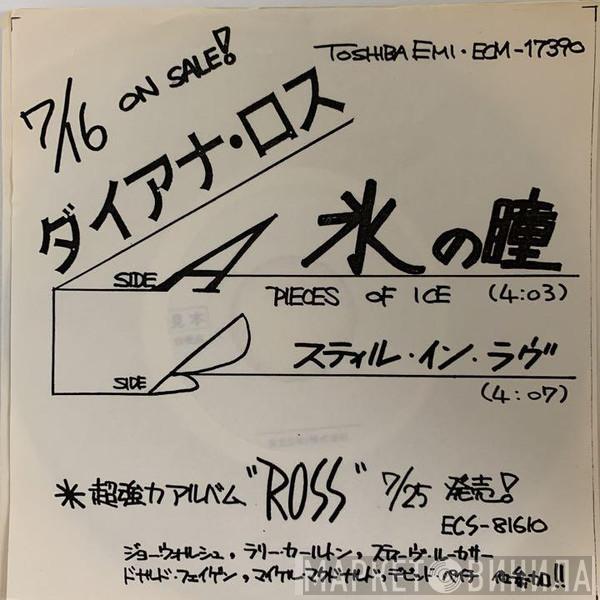 7/16 ON SALE!
TOSHIBA EMI・ECM-17390
ダイアナ・ロス
SIDE A 氷の瞳
PIECES OF ICE (4:03)
SIDE B スティル・イン・ラヴ
(4:07)
* 超強力アルバム "ROSS" 7/25 発売!
ECS-81610
ジョーウォルシュ, ラリーカールトン, スティーヴ・ルーカサー
ドナルド・フェイゲン, マイケル・マクドナルド, デビッド・ペイチ 他参加!!
МАРКЕТ ВИНИЛА